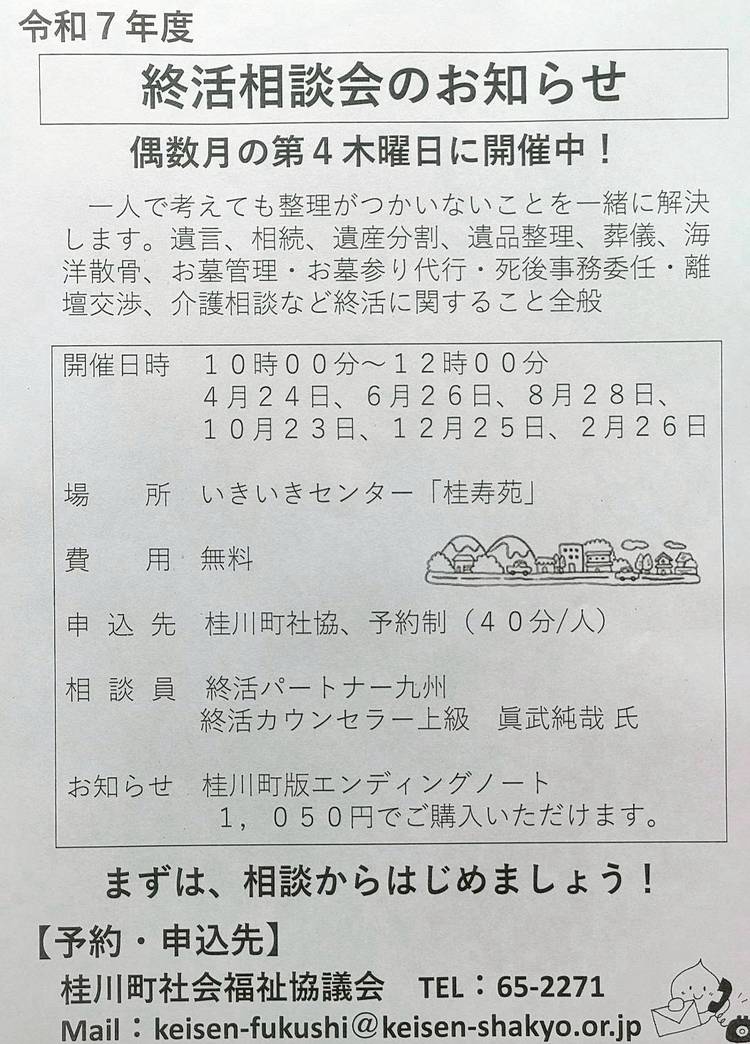 令和７年度
終活相談会のお知らせ
偶数月の第４木曜日に開催中！
一人で考えても整理がつかいないことを一緒に解決
します。遺言、相続、遺産分割、遺品整理、葬儀、海
洋散骨、お墓管理・お墓参り代行・死後事務委任・離
壇交渉、介護相談など終活に関すること全般
開催日時　１０時００分～１２時００分
４月２４日、６月２６日、８月２８日、
１０月２３日、１２月２５日、２月２６日
場　　所　いきいきセンター「桂寿苑」
費　　用　無料
申 込 先　桂川町社協、予約制（４０分/人）
相 談 員　終活パートナー九州
終活カウンセラー上級　眞武純哉 氏
お知らせ　桂川町版エンディングノート
１，０５０円でご購入いただけます。
まずは、相談からはじめましょう！
【予約・申込先】
桂川町社会福祉協議会　TEL：65-2271
Mail：keisen-fukushi@keisen-shakyo.or.jp